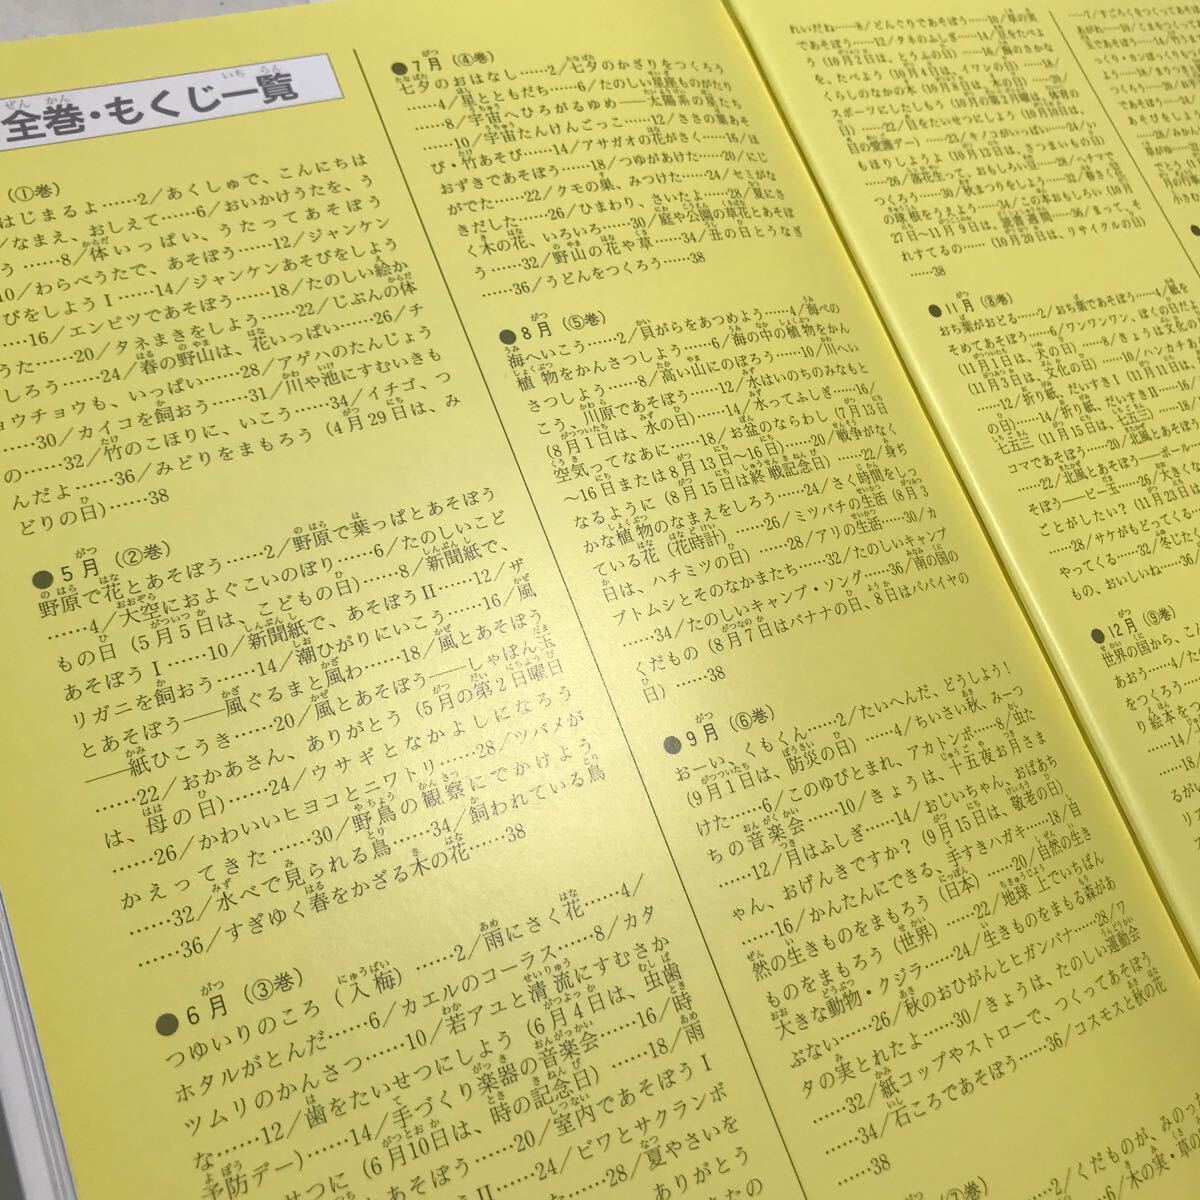 全巻・もくじ一覧
(①巻)
はじまるよ……2/あくしゅで、こんにちは
/なまえ、おしえて……6/おいかけうたを、う
う……8/体いっぱい、うたってあそぼう
10/わらべうたで、あそぼう……12/ジャンケン
びをしようⅠ……14/ジャンケンあそびをしよう
……16/エンピツであそぼう……18/たのしい絵か
うた……20/タネまきをしよう……22/じぶんの体
しろう……24/春の野山は、花いっぱい……26/チ
ョウチョウも、いっぱい……28/アゲハのたんじょう
……30/カイコを飼おう……31/川や池にすむいきも
の……32/竹のこほりに、いこう……34/イチゴ、つ
んだよ……36/みどりをまもろう(4月29日は、み
どりの日)……38
●5月(②巻)
野原で花とあそぼう……2/野原で葉っぱとあそぼう
……4/大空におよぐこいのぼり……6/たのしいこど
もの日(5月5日は、こどもの日)……8/新聞紙で、
あそぼうⅠ……10/新聞紙で、あそぼうⅡ……12/ザ
リガニを飼おう……14/潮ひがりにいこう……16/風
とあそぼう——風ぐるまと風わ……18/風とあそぼう
——紙ひこうき……20/風とあそぼう——しゃぼん玉
……22/おかあさん、ありがとう(5月の第2日曜日
は、母の日)……24/ウサギとなかよしになろう
……26/かわいいヒヨコとニワトリ……28/ツバメが
かえってきた……30/野鳥の観察にでかけよう
……32/水べで見られる鳥……34/飼われている鳥
……36/すぎゆく春をかざる木の花……38
●6月(③巻)
つゆいりのころ(入梅)……2/雨にさく花……4/
ホタルがとんだ……6/カエルのコーラス……8/カタ
ツムリのかんさつ……10/若アユと清流にすむさか
な……12/歯をたいせつにしよう(6月4日は、虫歯
予防デー)……14/手づくり楽器の音楽会……16/時
(6月10日は、時の記念日)……18/雨
……20/室内であそぼうⅠ
……24/ビワとサクランボ
……28/夏やさいを
●7月(④巻)
七夕のおはなし……2/七夕のかざりをつくろう
……4/星とともだち……6/たのしい星座ものがたり
……8/宇宙へひろがるゆめ——太陽系の星たち
……10/宇宙たんけんごっこ……12/ささの葉あそ
び・竹あそび……14/アサガオの花がさく……16/ほ
おずきであそぼう……18/つゆがあけた……20/にじ
がでた……22/クモの巣、みつけた……24/セミがな
きだした……26/ひまわり、さいたよ……28/夏にさ
く木の花、いろいろ……30/庭や公園の草花とあそぼ
う……32/野山の花や草……34/丑の日とうなぎ
……36/うどんをつくろう……38
●8月(⑤巻)
海へいこう……2/貝がらをあつめよう……4/海べの
植物をかんさつしよう……6/海の中の植物をかん
さつしよう……8/高い山にのぼろう……10/川へい
こう、川原であそぼう……12/水はいのちのみなもと
(8月1日は、水の日)……14/水ってふしぎ……16/
空気ってなあに……18/お盆のならわし(7月13日
～16日または8月13日～16日)……20/戦争がなく
なるように(8月15日は終戦記念日)……22/身ぢ
かな植物のなまえをしろう……24/さく時間をしっ
ている花(花時計)……26/ミツバチの生活(8月3
日は、ハチミツの日)……28/アリの生活……30/カ
ブトムシとそのなかまたち……32/たのしいキャンプ
……34/たのしいキャンプ・ソング……36/南の国の
くだもの(8月7日はバナナの日、8日はパパイヤの
日)……38
●9月(⑥巻)
おーい、くもくん……2/たいへんだ、どうしよう!
(9月1日は、防災の日)……4/ちいさい秋、みーつ
けた……6/このゆびとまれ、アカトンボ……8/虫た
ちの音楽会……10/きょうは、十五夜お月さま
……12/月はふしぎ……14/おじいちゃん、おばあち
ゃん、おげんきですか?(9月15日は、敬老の日)
……16/かんたんにできる、手すきハガキ……18/自
然の生きものをまもろう(日本)……20/自然の生き
ものをまもろう(世界)……22/地球上でいちばん
大きな動物・クジラ……24/生きものをまもる森があ
ぶない……26/秋のおひがんとヒガンバナ……28/ワ
タの実とれたよ……30/きょうは、たのしい運動会
……32/紙コップやストローで、つくってあそぼう
……34/石ころであそぼう……36/コスモスと秋の花
……38
(⑦巻)
……2/くだものが、みのった
れいだね……8/どんぐりであそぼう……10/草の実
であそぼう……12/タネのふしぎ……14/豆をたべよ
う(10月2日は、とうふの日)……16/海のさかな
を、たべよう(10月4日は、イワシの日)……18/
くらしのなかの木(10月8日は、木の日)……20/
スポーツにしたしもう(10月の第2月曜は、体育の
日)……22/目をたいせつにしよう(10月10日は、
目の愛護デー)……23/キノコがいっぱい……24/い
もほりしようよ(10月13日は、さつまいもの日)
……26/落花生って、おもしろい豆……28/ヘチマで
つくろう……30/秋まつりをしよう……32/春さく花
の球根をうえよう……34/この本おもしろい(10月
27日～11月9日は、読書週間)……36/まって、そ
れすてるの……(10月20日は、リサイクルの日)
……38
●11月(⑧巻)
おち葉がおどる……2/おち葉であそぼう……4/紙を
そめてあそぼう……6/ワンワンワン、ぼくの日だよ
(11月1日は、犬の日)……8/きょうは文化の日
(11月3日は、文化の日)……10/ハンカチあ
……12/折り紙、だいすきⅠ(11月11日は、
……14/折り紙、だいすきⅡ……16/
七五三(11月15日は、七五三)
コマであそぼう……20/北風とあそぼ
……22/北風とあそぼう——ボール
そぼう——ビー玉……26/大きくな
ことがしたい?(11月23日は
……28/サケがもどってくる
やってくる……32/冬じたく
もの、おいしいね……36/
●12月(⑨巻)
世界の国から、こん
あおう……4/た
をつくろう……
り絵本をつ